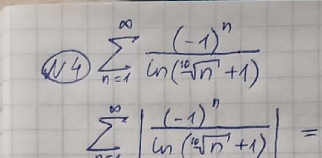 №4 \sum_{n=1}^{\infty} \frac{(-1)^n}{\ln(\sqrt[10]{n}+1)}
\sum_{n=1}^{\infty} \left| \frac{(-1)^n}{\ln(\sqrt[10]{n}+1)} \right| =